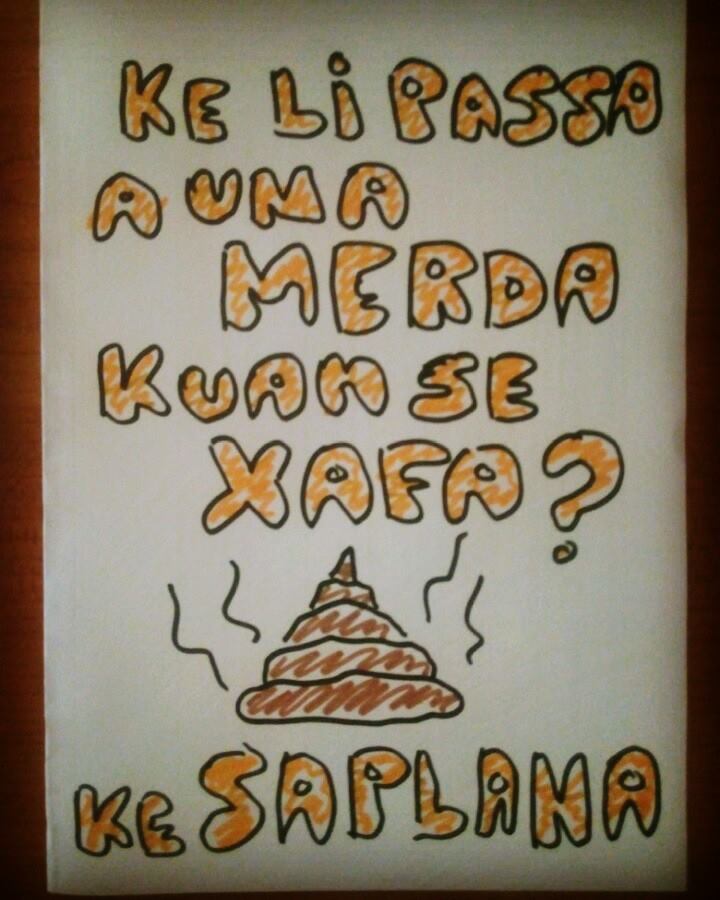 KE LI PASSA
A UNA
MERDA
KUAN SE
XAFA?
KE SAPLANA